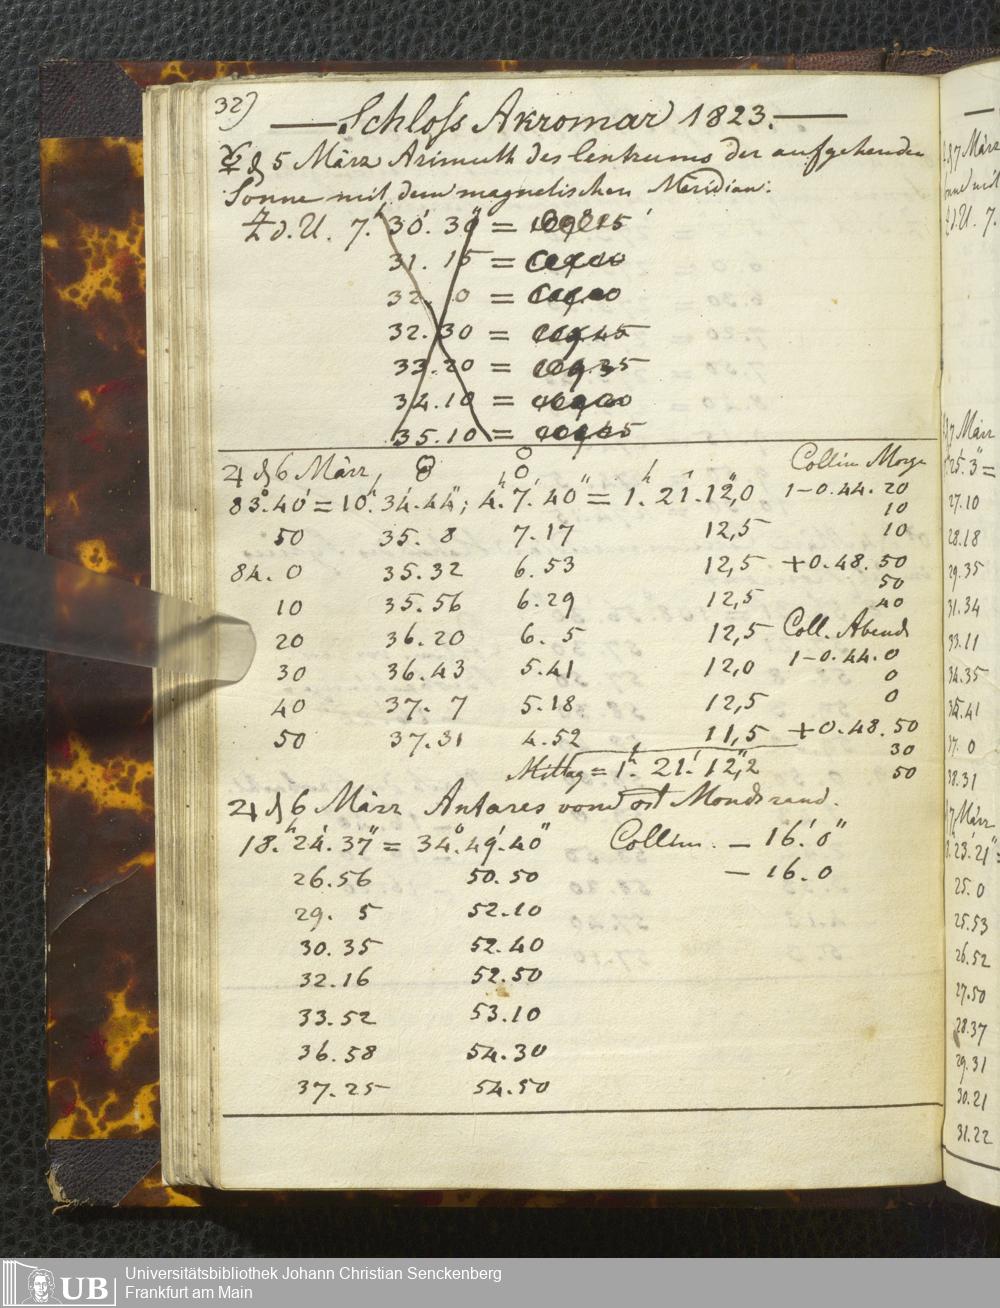 32)
Schloss Akromar 1823.
☿ d 5 März Azimuth des Centrums der aufgehenden
Sonne mit dem magnetischen Meridian:
Z d. U. 7.h 30.' 30" =
31. 15 =
32. 0 =
32. 30 =
33. 20 =
34. 10 =
35. 10 =
♃ d 6 März, Collim Morg
83°. 40' = 10.h 34.' 44"; 4.h 7.' 40" = 1.h 21.' 12",0 1 – 0. 44. 20
10
50 35. 8 7. 17 12,5 10
84. 0 35. 32 6. 53 12,5 + 0. 48. 50
50
10 35. 56 6. 29 12,5 40
20 36. 20 6. 5 12,5 Coll. Abends
30 36. 43 5. 41 12,0 1 – 0. 44. 0
0
40 37. 7 5. 18 12,5 0
50 37. 31 4. 52 11,5 + 0. 48. 50
30
Mittag = 1.h 21.' 12",2 50
♃ d 6 März Antares vom ost Mondsrand.
18.h 24.' 37" = 34°. 49.' 40" Collim. – 16.' 0"
26. 56 50. 50 – 16. 0
29. 5 52. 10
30. 35 52. 40
32. 16 52. 50
33. 52 53. 10
36. 58 54. 30
37. 25 54. 50
7 März
d. U. 7.
7 März
25. 3" =
27. 10
28. 18
29. 35
31. 34
33. 11
34. 35
37. 0
38. 31
März
23.' 21" =
25. 0
25. 53
26. 52
27. 50
28. 37
29. 31
30. 21
31. 22
UB
Universitätsbibliothek Johann Christian Senckenberg
Frankfurt am Main